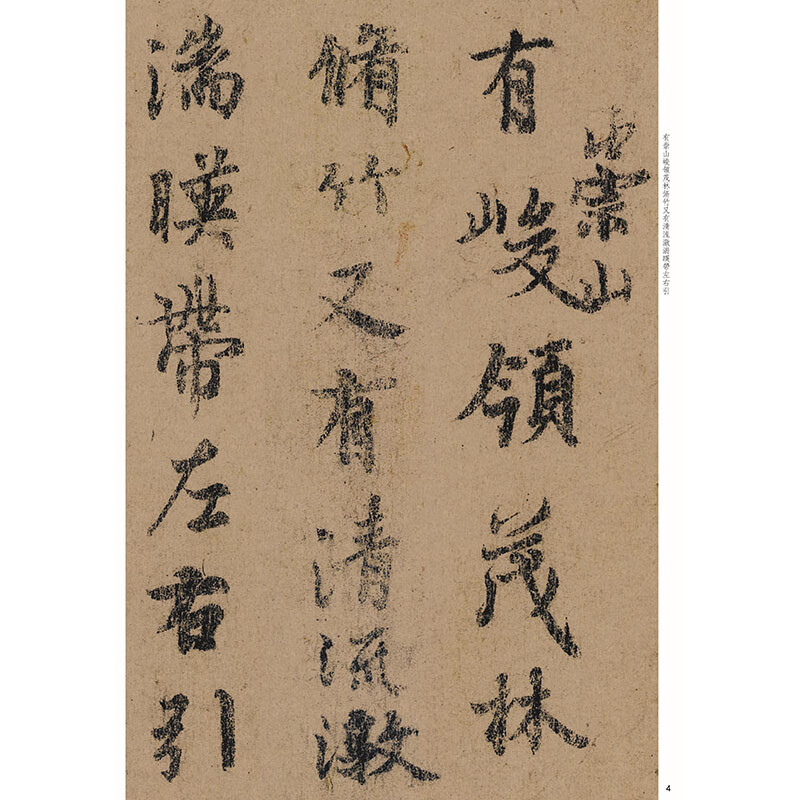 有崇山峻領茂林脩竹又有清流激湍暎帶左右引
崇山
有峻領茂林
脩竹又有清流激
湍暎帶左右引
4